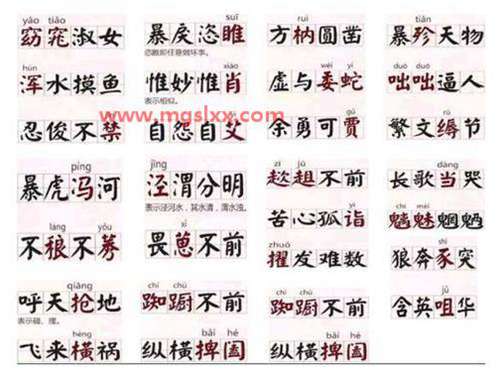 yǎo tiǎo
窈窕淑女
suī
暴戾恣睢
恣睢即任意做坏事。
ruì
方枘圆凿
tiǎn
暴殄天物
hún
浑水摸鱼
xiào
惟妙惟肖
表示相似。
wēi yí
虚与委蛇
duō duō
咄咄逼人
www.mgslxx.com
忍俊不禁
自怨自艾
gǔ
余勇可贾
rù
繁文缛节
píng
暴虎冯河
jīng
泾渭分明
表示泾河水，其水清，渭水浊。
zī jū
趑趄不前
dàng
长歌当哭
yì
苦心孤诣
魑魅魍魉
láng yǒu
不稂不莠
xǐ
畏葸不前
zhuó
擢发难数
狼奔豕突
qiāng
呼天抢地
表示碰、撞。
chí chú
踟蹰不前
chí chú
踟蹰不前
jǔ
含英咀华
hèng
飞来横祸
bǎi hé
纵横捭阖
bǎi hé
纵横捭阖